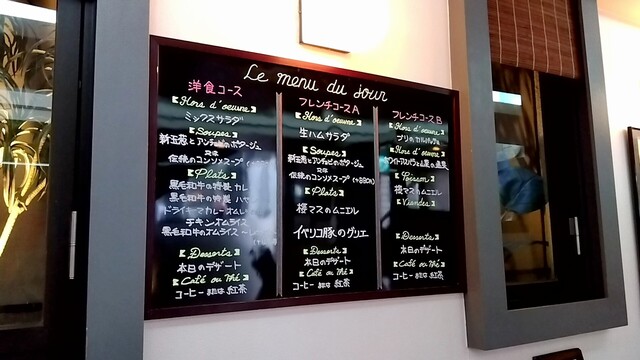 Le menu du jour
洋食コース
Hors d'oeuvre
ミックスサラダ
Soupes
新玉葱とアンチョビのポタージュ
又は
伝統のコンソメスープ
Plats
黒毛和牛の特製カレ
黒毛和牛の特製ハヤ
ドライキーマカレーオムレ
チキンオムライス
黒毛和牛のオムライス
Desserts
本日のデザート
Café ou Thé
コーヒー または 紅茶
フレンチコースA
Hors d'oeuvre
生ハムサラダ
Soupes
新玉葱とアンチョビのポタージュ
又は
伝統のコンソメスープ(+880)
Plats
桜マスのムニエル
イベリコ豚のグリエ
Desserts
本日のデザート
Café ou Thé
コーヒー または 紅茶
フレンチコースB
Hors d'oeuvre
ブリのカルパッチョ
Hors d'oeuvre
ホワイトアスパラと
Poisson
桜マスのムニエル
Viandes
Desserts
本日のデザート
Café ou Thé
コーヒー または 紅茶